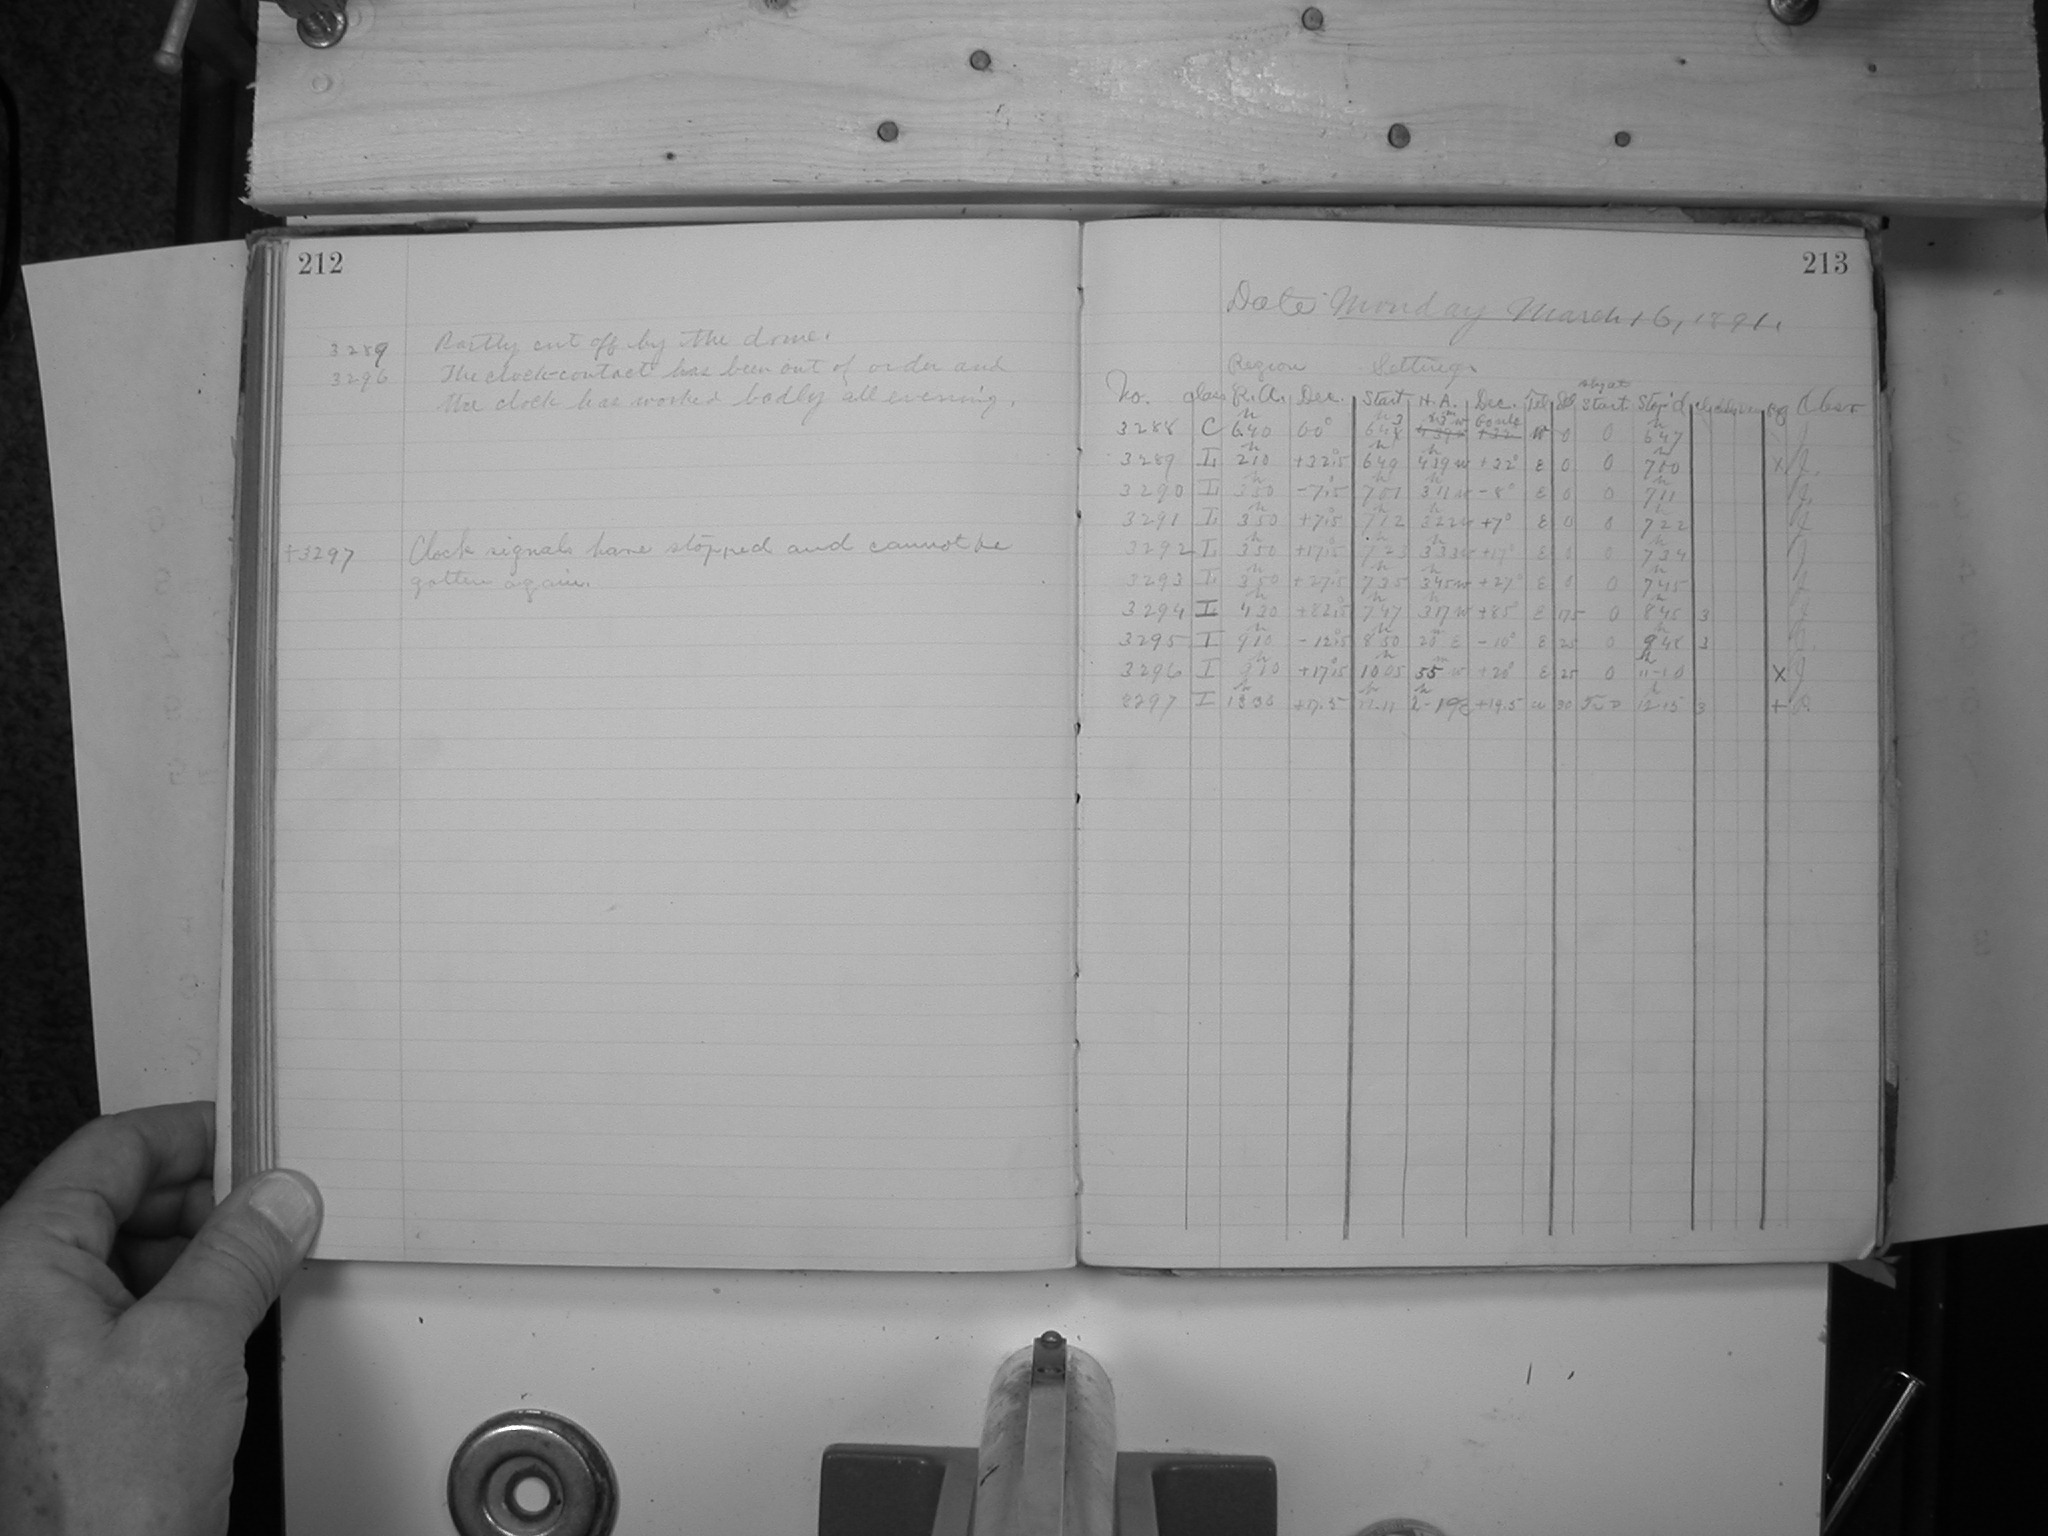 212
3289 Partly cut off by the dome.
3296 The clock-contact has been out of order and
the clock has worked badly all evening.
+3297 Clock signals have stopped and cannot be
gotten again.
213
Date Monday March 16, 1891.
Region Settings
No. Class R.A. Dec. Start H.A. Dec. Tel Start Stop'd Obsr
3288 C 6h40 60° 648 W 0 0 6h47 J.
3289 I 2h10 +32°.5 6h49 4h39 w +32° E 0 0 7h00 x J.
3290 I 3h50 -7°.5 7h01 3h11 w -8° E 0 0 7h11 J.
3291 I 3h50 +7°.5 7h12 3h22 w +7° E 0 0 7h22 J.
3292 I 3h50 +17°.5 7h23 3h33 w +17° E 0 0 7h34 J.
3293 I 3h50 +27°.5 7h35 3h45 w +27° E 0 0 7h45 J.
3294 I 4h30 +82°.5 7h47 3h17 w +85° E 175 0 8h45 3 J.
3295 I 9h10 -12°.5 8h50 20m E -10° E 25 0 9h48 3 J.
3296 I 9h10 +17°.5 10h05 55m w +20° E 25 0 11h10 x J.
3297 I 13h30 +17.5 11h11 2h-19 E +19.5 w 30 12h15 3 +